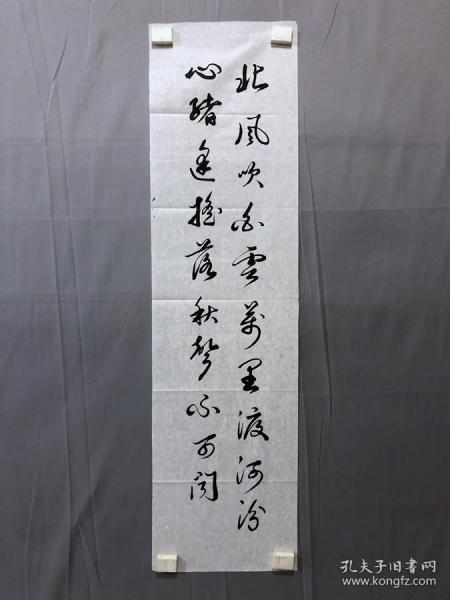 北風吹白雲萬里渡河汾
心緒逢搖落秋聲不可聞
孔夫子旧书网
www.kongfz.com